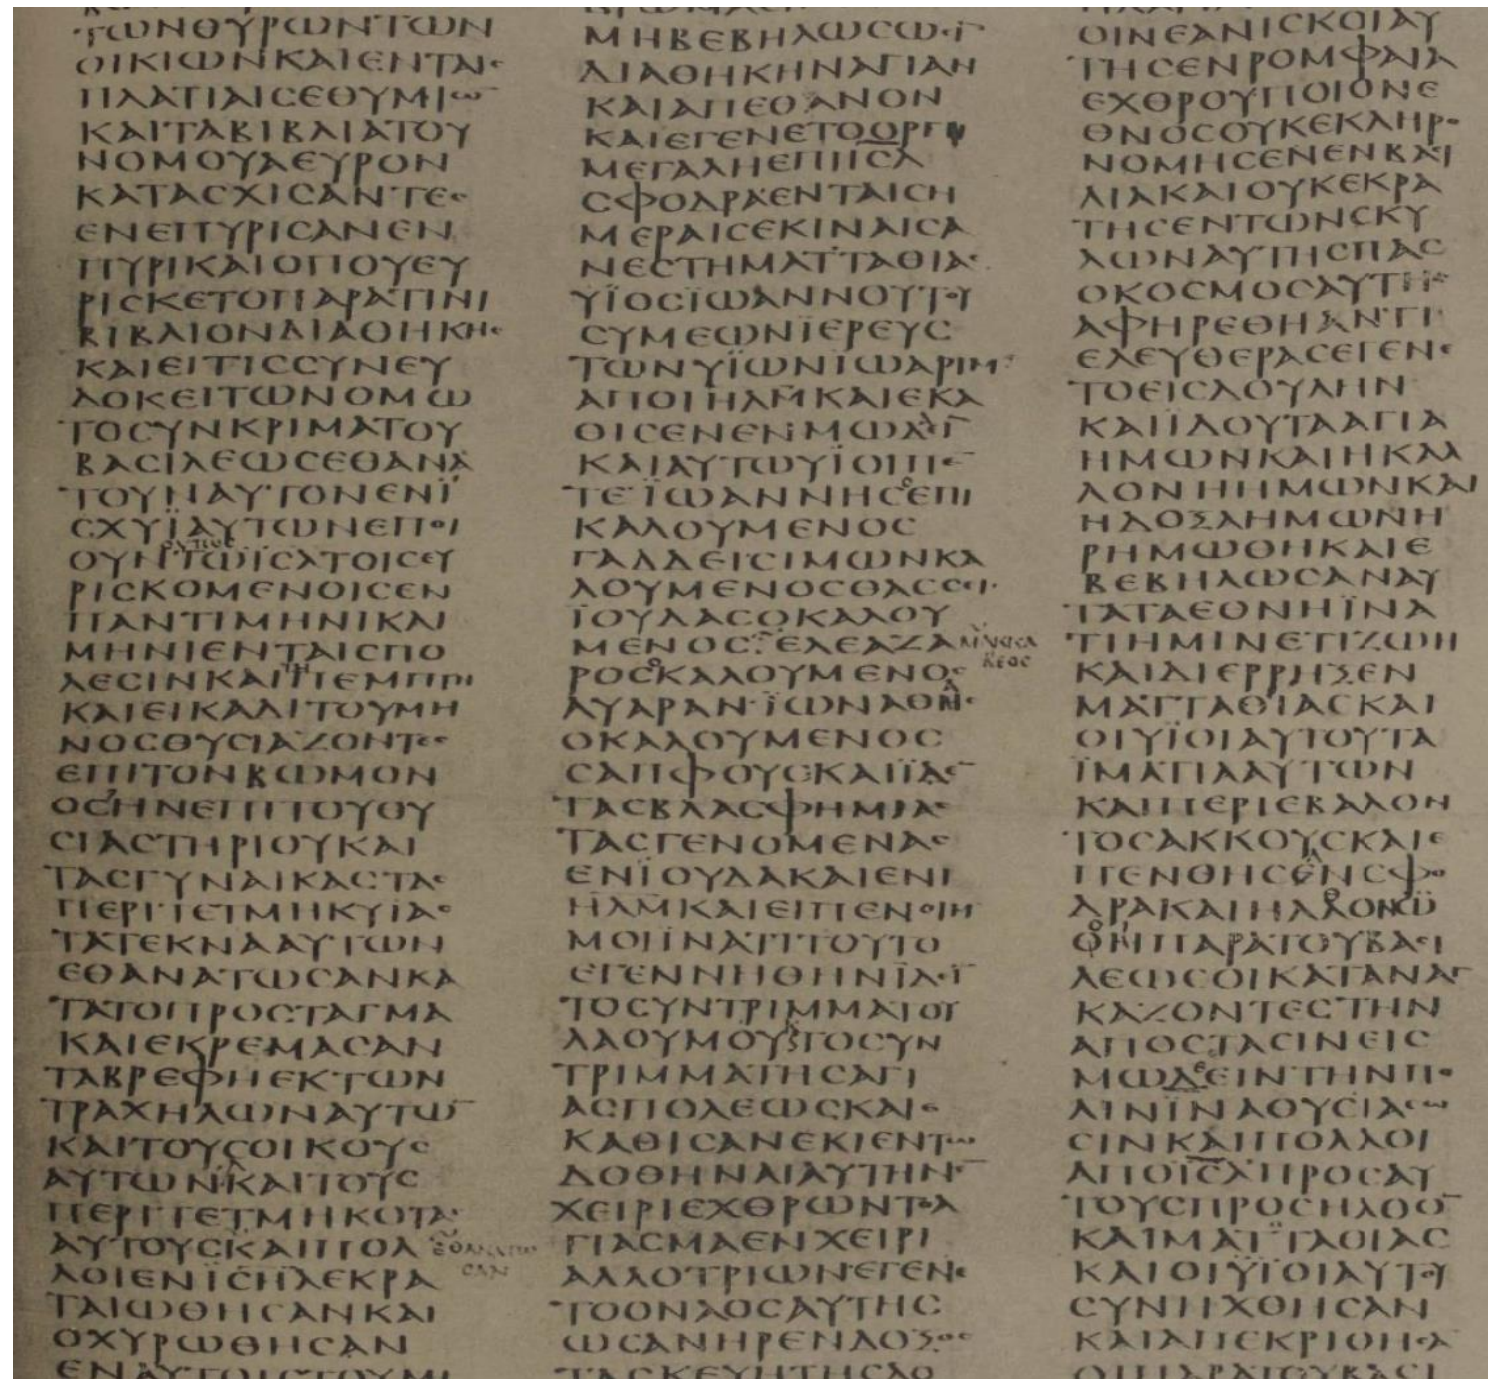 ΤΩΝΘΥΡΩΝΤΩΝ
ΟΙΚΙΩΝΚΑΙΕΝΤΑΙϹ
ΠΛΑΤΙΑΙϹΕΘΥΜΙΩ
ΚΑΙΤΑΒΙΒΛΙΑΤΟΥ
ΝΟΜΟΥΑΕΥΡΟΝ
ΚΑΤΑϹΧΙϹΑΝΤΕϹ
ΕΝΕΠΥΡΙϹΑΝΕΝ
ΠΥΡΙΚΑΙΟΠΟΥΕΥ
ΡΙϹΚΕΤΟΠΑΡΑΤΙΝΙ
ΒΙΒΛΙΟΝΔΙΑΘΗΚΗϹ
ΚΑΙΕΙΤΙϹϹΥΝΕΥ
ΔΟΚΕΙΤΩΝΟΜΩ
ΤΟϹΥΝΚΡΙΜΑΤΟΥ
ΒΑϹΙΛΕΩϹΕΘΑΝΑ
ΤΟΥΝΑΥΤΟΝΕΝΪ
ϹΧΥΪΑΥΤΩΝΕΠΟΙ
ΟΥΝΤΩΪϹΑΤΟΙϹΕΥ
ΡΙϹΚΟΜΕΝΟΙϹΕΝ
ΠΑΝΤΙΜΗΝΙΚΑΙ
ΜΗΝΙΕΝΤΑΙϹΠΟ
ΛΕϹΙΝΚΑΙΤΗΠΕΜΠΤΗ
ΚΑΙΕΙΚΑΔΙΤΟΥΜΗ
ΝΟϹΘΥϹΙΑΖΟΝΤΕϹ
ΕΠΙΤΟΝΒΩΜΟΝ
ΟϹΗΝΕΠΙΤΟΥΘΥ
ϹΙΑϹΤΗΡΙΟΥΚΑΙ
ΤΑϹΓΥΝΑΙΚΑϹΤΑϹ
ΠΕΡΙΤΕΤΜΗΚΥΪΑϹ
ΤΑΤΕΚΝΑΑΥΤΩΝ
ΕΘΑΝΑΤΩϹΑΝΚΑ
ΤΑΤΟΠΡΟϹΤΑΓΜΑ
ΚΑΙΕΚΡΕΜΑϹΑΝ
ΤΑΒΡΕΦΗΕΚΤΩΝ
ΤΡΑΧΗΛΩΝΑΥΤΩ
ΚΑΙΤΟΥϹΟΙΚΟΥϹ
ΑΥΤΩΝΚΑΙΤΟΥϹ
ΠΕΡΙΤΕΤΜΗΚΟΤΑϹ
ΑΥΤΟΥϹΚΑΙΠΟΛ ΕΘΑΝΑΤΩϹΑΝ
ΛΟΙΕΝΙϹΗΛΕΚΡΑ
ΤΑΙΩΘΗϹΑΝΚΑΙ
ΟΧΥΡΩΘΗϹΑΝ
ΜΗΒΕΒΗΛΩϹΩϹΙ
ΔΙΑΘΗΚΗΝΑΓΙΑΝ
ΚΑΙΑΠΕΘΑΝΟΝ
ΚΑΙΕΓΕΝΕΤΟΟΡΓΗ
ΜΕΓΑΛΗΕΠΙΙϹΛ
ϹΦΟΔΡΑΕΝΤΑΙϹΗ
ΜΕΡΑΙϹΕΚΙΝΑΙϹΑ
ΝΕϹΤΗΜΑΤΤΑΘΙΑϹ
ΥΪΟϹΪΩΑΝΝΟΥΤΟΥ
ϹΥΜΕΩΝΪΕΡΕΥϹ
ΤΩΝΥΪΩΝΪΩΑΡΙΜ
ΑΠΟΙΗΛΜΚΑΙΕΚΑ
ΟΙϹΕΝΕΝΜΩΔΙ
ΚΑΙΑΥΤΩΥΪΟΙΠΕ
ΤΕΪΩΑΝΝΗϹΟΕΠΙ
ΚΑΛΟΥΜΕΝΟϹ
ΓΑΔΔΕΙϹΙΜΩΝΚΑ
ΛΟΥΜΕΝΟϹΘΑϹϹΕΙϹ
ΪΟΥΔΑϹΟΚΑΛΟΥ
ΜΕΝΟϹΕΛΕΑΖΑ
ΡΟϹΟΚΑΛΟΥΜΕΝΟϹ
ΑΥΑΡΑΝΪΩΝΑΘΗϹ
ΟΚΑΛΟΥΜΕΝΟϹ
ϹΑΠΦΟΥϹΚΑΙΪΔΕ
ΤΑϹΒΛΑϹΦΗΜΙΑϹ
ΤΑϹΓΕΝΟΜΕΝΑϹ
ΕΝΪΟΥΔΑΚΑΙΕΝΙ
ΗΛΜΚΑΙΕΙΠΕΝΟΙΗ
ΜΟΙΙΝΑΤΙΤΟΥΤΟ
ΕΓΕΝΝΗΘΗΝΪΔΙ
ΤΟϹΥΝΤΡΙΜΜΑΤΟΥ
ΛΑΟΥΜΟΥΚϚΤΟϹΥΝ
ΤΡΙΜΜΑΤΗϹΑΓΙ
ΑϹΠΟΛΕΩϹΚΑΙϹ
ΚΑΘΙϹΑΝΕΚΙΕΝΤΩ
ΔΟΘΗΝΑΙΑΥΤΗΝΕ
ΧΕΙΡΙΕΧΘΡΩΝΤΟΑ
ΓΙΑϹΜΑΕΝΧΕΙΡΙ
ΑΛΛΟΤΡΙΩΝΕΓΕΝΕ
ΤΟΟΝΑΟϹΑΥΤΗϹ
ΩϹΑΝΗΡΕΝΔΟΞΟϹ
ΟΙΝΕΑΝΙϹΚΟΙΑΥ
ΤΗϹΕΝΡΟΜΦΑΙΑ
ΕΧΘΡΟΥΠΟΙΟΝΕ
ΘΝΟϹΟΥΚΕΚΛΗΡΟ
ΝΟΜΗϹΕΝΕΝΒΑϹΙ
ΛΙΑΚΑΙΟΥΚΕΚΡΑ
ΤΗϹΕΝΤΩΝϹΚΥ
ΛΩΝΑΥΤΗϹΠΑϹ
ΟΚΟϹΜΟϹΑΥΤΗϹ
ΑΦΗΡΕΘΗΑΝΤΙ
ΕΛΕΥΘΕΡΑϹΕΓΕΝΕ
ΤΟΕΙϹΔΟΥΛΗΝ
ΚΑΙΙΔΟΥΤΑΑΓΙΑ
ΗΜΩΝΚΑΙΗΚΑΛ
ΛΟΝΗΗΜΩΝΚΑΙ
ΗΔΟΞΑΗΜΩΝΗ
ΡΗΜΩΘΗΚΑΙΕ
ΒΕΒΗΛΩϹΑΝΑΥ
ΤΑΤΑΕΘΝΗΪΝΑ
ΤΙΗΜΙΝΕΤΙΖΩΗ
ΚΑΙΔΙΕΡΡΗΞΕΝ
ΜΑΤΤΑΘΙΑϹΚΑΙ
ΟΙΥΪΟΙΑΥΤΟΥΤΑ
ΪΜΑΤΙΑΑΥΤΩΝ
ΚΑΙΠΕΡΙΕΒΑΛΟΝ
ΤΟϹΑΚΚΟΥϹΚΑΙΕ
ΠΕΝΘΗϹΕΝϹΦΟ
ΔΡΑΚΑΙΗΛΘΟΝΟΙ
ΠΑΡΑΤΟΥΒΑϹΙ
ΛΕΩϹΟΙΚΑΤΑΝΑΓ
ΚΑΖΟΝΤΕϹΤΗΝ
ΑΠΟϹΤΑϹΙΝΕΙϹ
ΜΩΔΕΕΙΝΤΗΝΠΟ
ΛΙΝΪΝΑΘΥϹΙΑϹΩ
ϹΙΝΚΑΙΠΟΛΛΟΙ
ΑΠΟΙϹΛΠΡΟϹΑΥ
ΤΟΥϹΠΡΟϹΗΛΘΟ
ΚΑΙΜΑΤΤΑΘΙΑϹ
ΚΑΙΟΙΥΪΟΙΑΥΤΟΥ
ϹΥΝΗΧΘΗϹΑΝ
ΚΑΙΑΠΕΚΡΙΘΗϹΑ